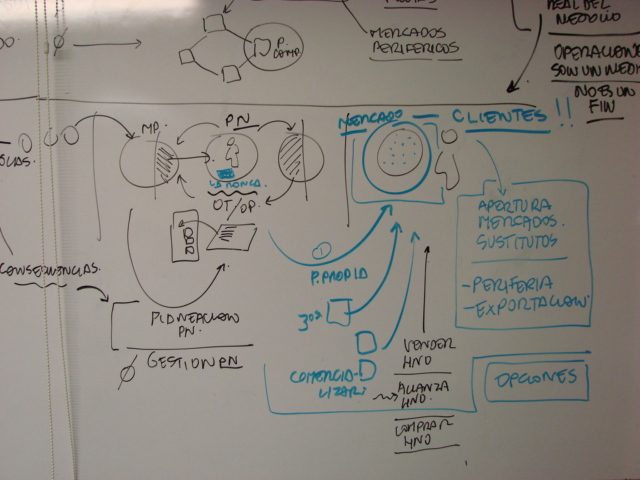 P.
COMP.
MERCADOS
PERIFERICOS
REAL DEL
NEGOCIO
OPERACIONES
SON UN MEDIO
NO ES UN
FIN
MP.
PN
OT/OP.
MERCADO - CLIENTES !!
APERTURA
MERCADOS.
SUSTITUTOS
-PERIFERIA
-EXPORTACION.
1
P. PROPIA
3OS
CONSEQUENCIAS.
PLANEACION
PN.
GESTION PN
COMERCIA-
LIZAR
VENDER
HNO
ALIANZA
HNO.
COMPRAR
HNO
OPCIONES